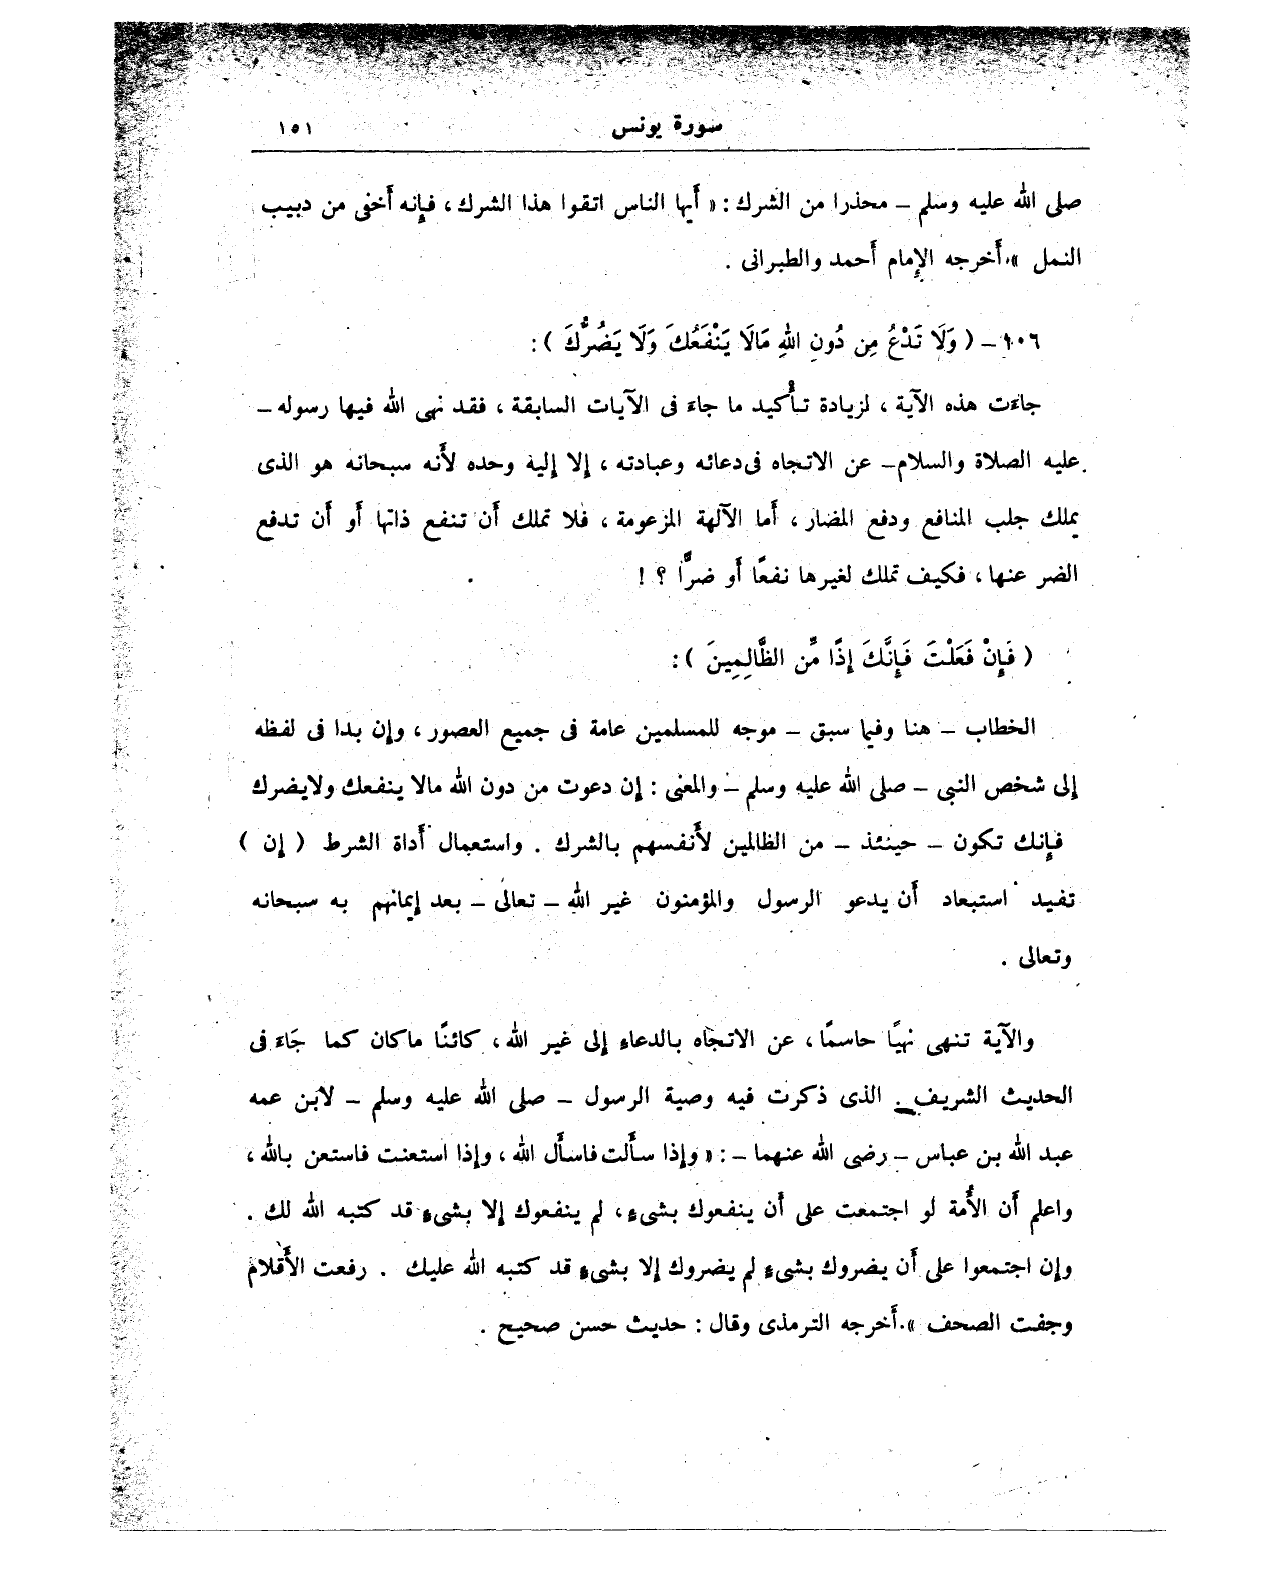 سورة يونس
١٥١
صلى الله عليه وسلم – محذرا من الشرك : « أيها الناس اتقوا هذا الشرك ، فإنه أخفى من دبيب
النمل » . أخرجه الإمام أحمد والطبرانى .
١٠٦ – ( وَلَا تَدْعُ مِن دُونِ اللهِ مَالَا يَنْفَعُكَ وَلَا يَضُرُّكَ ) :
جاءَت هذه الآية ، لزيادة تأْكيد ما جاءَ فى الآيات السابقة ، فقد نهى الله فيها رسوله –
عليه الصلاة والسلام – عن الاتجاه فى دعائه وعبادته ، إلا إلية وحده لأَنه سبحانه هو الذى
يملك جلب المنافع ودفع المضار ، أما الآلهة المزعومة ، فلا تملك أن تنفع ذاتها أو أن تدفع
الضر عنها ، فكيف تملك لغيرها نفعًا أو ضرًّا ؟ !
( فَإِنْ فَعَلْتَ فَإِنَّكَ إِذًا مِّن الظَّالِمِينَ ) :
الخطاب – هنا وفيما سبق – موجه للمسلمين عامة فى جميع العصور ، وإن بدا فى لفظه
إلى شخص النبى – صلى الله عليه وسلم – والمعنى : إن دعوت من دون الله مالا ينفعك ولايضرك
فإنك تكون – حينئذ – من الظالمين لأَنفسهم بالشرك . واستعمال أداة الشرط ( إن )
تفيد استبعاد أن يدعو الرسول والمؤمنون غير الله – تعالى – بعد إيمانهم به سبحانه
وتعالى .
والآية تنهى نهيًا حاسمًا ، عن الاتجاه بالدعاءِ إلى غير الله ، كائنًا ماكان كما جَاءَ فى
الحديث الشريف . الذى ذكرت فيه وصية الرسول – صلى الله عليه وسلم – لابن عمه
عبد الله بن عباس – رضى الله عنهما – : « وإذا سأَلت فاسأَل الله ، وإذا استعنت فاستعن بالله ،
واعلم أن الأُمة لو اجتمعت على أن ينفعوك بشىءٍ ، لم ينفعوك إلا بشىءٍ قد كتبه الله لك .
وإن اجتمعوا على أن يضروك بشىءٍ لم يضروك إلا بشىءٍ قد كتبه الله عليك . رفعت الأَقلام
وجفت الصحف » . أخرجه الترمذى وقال : حديث حسن صحيح .